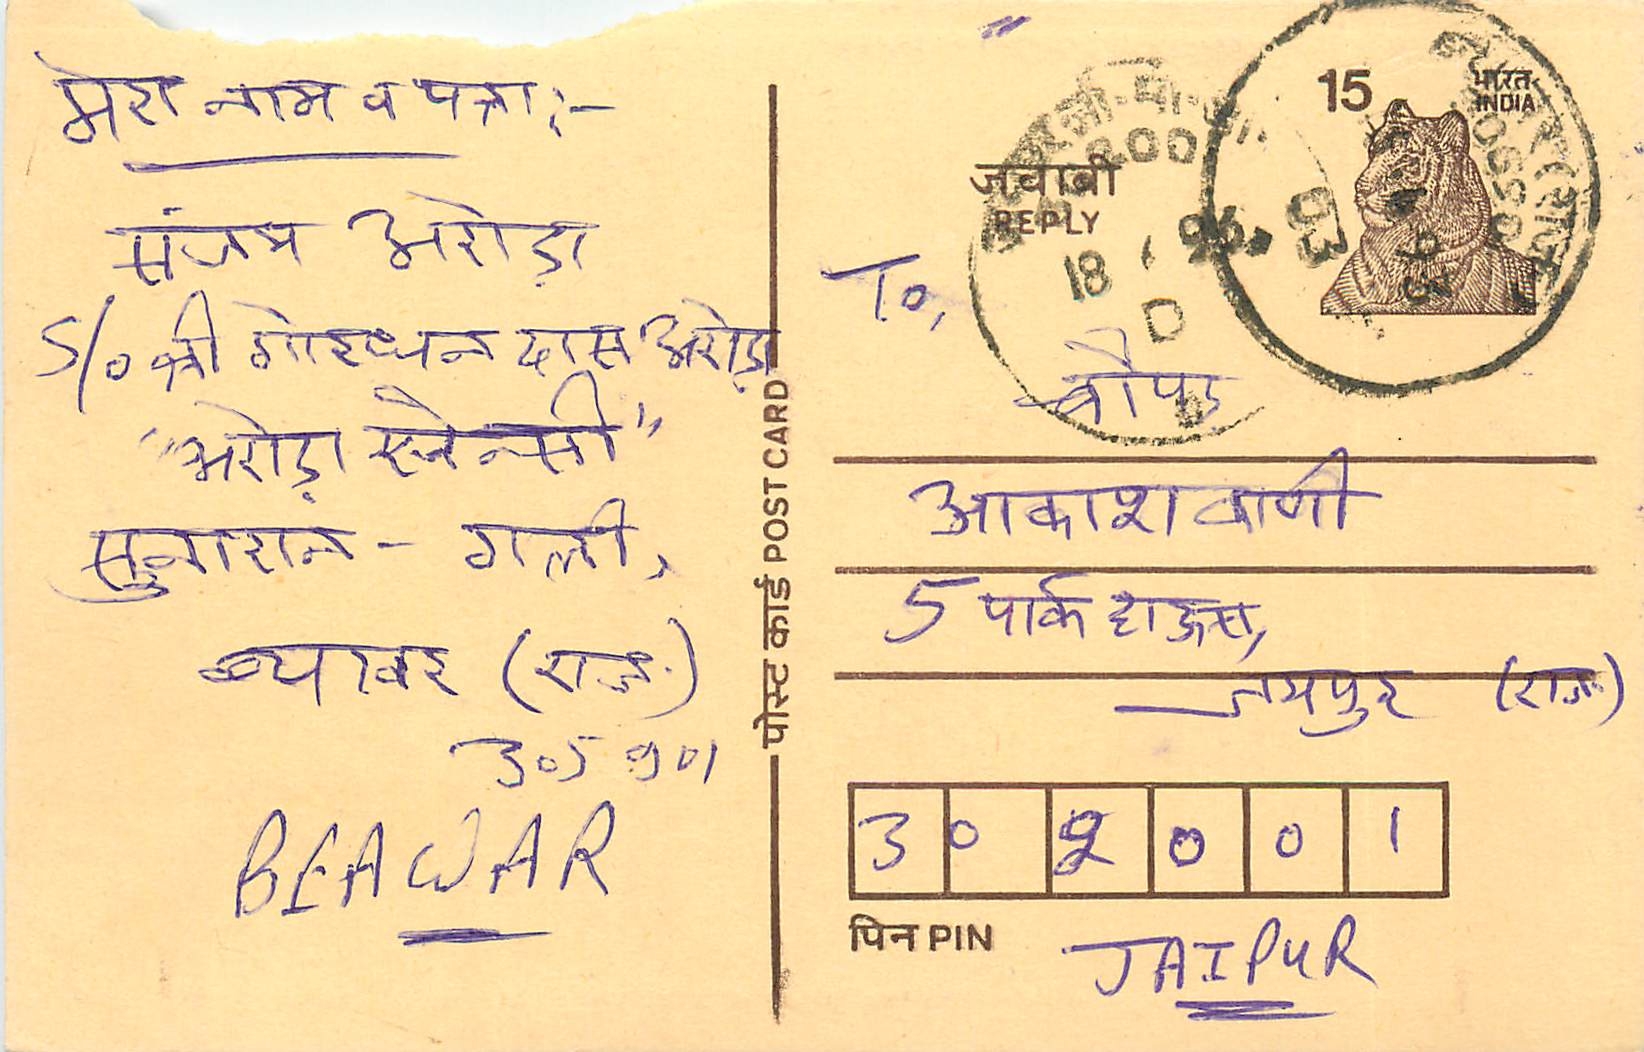 मेरा नाम व पता:-
संजय अरोड़ा
S/o श्री गोरधन दास अरोड़ा
"अरोड़ा एजेन्सी"
सुनारान - गली,
ब्यावर (राज.)
305901
BEAWAR
पोस्ट कार्ड POST CARD
15 भारत
INDIA
जवाबी
REPLY
18 96
D
To,
चौपाल
आकाशवाणी
5 पार्क हाऊस,
जयपुर (राज.)
302001
पिन PIN
JAIPUR